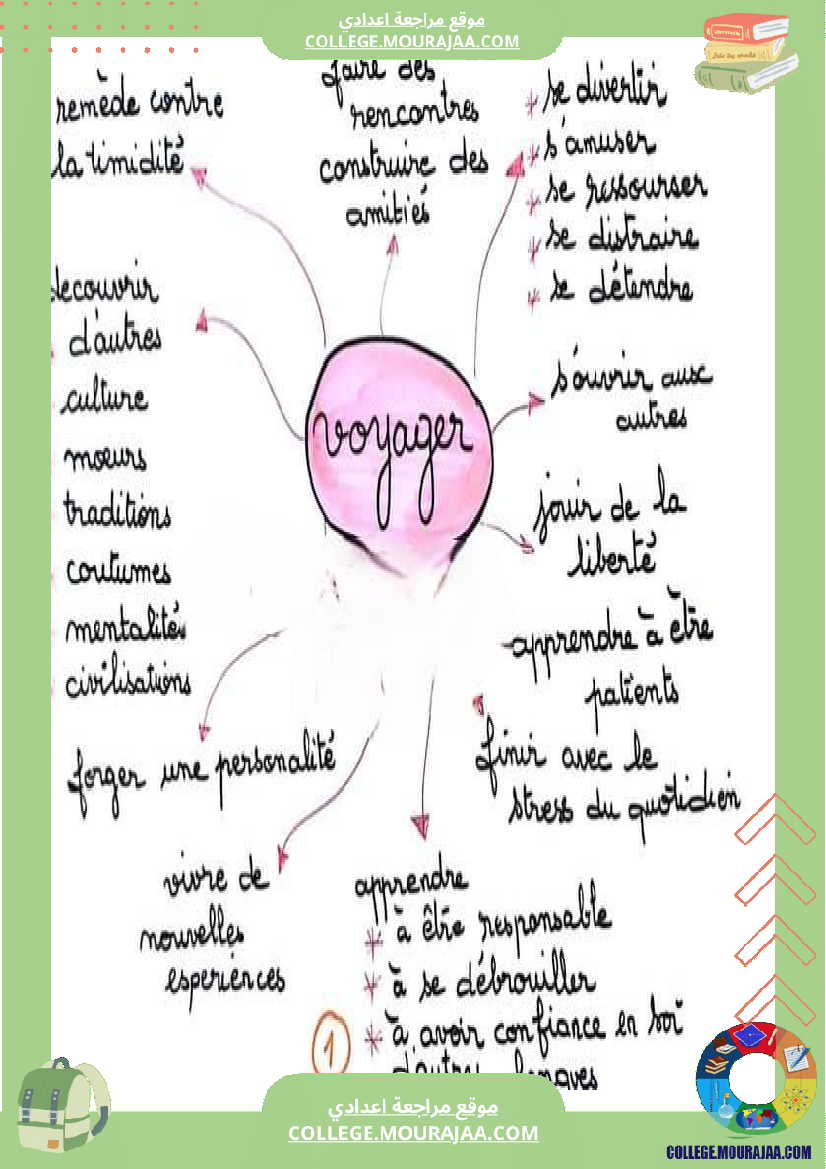 موقع مراجعة اعدادي
COLLEGE.MOURAJAA.COM
remède contre
la timidité
faire des
rencontres
construire des
amitiés
* se divertir
* s'amuser
* se ressourser
* se distraire
* se détendre
decouvrir
d'autres
culture
mœurs
traditions
coutumes
mentalités
civilisations
voyager
s'ouvrir aux
autres
jouir de la
liberté
apprendre à être
patients
finir avec le
stress du quotidien
forger une personalité
vivre de
nouvelles
esperiences
apprendre
* à être responsable
* à se débrouiller
* à avoir confiance en soi
d'autres
1
موقع مراجعة اعدادي
COLLEGE.MOURAJAA.COM
COLLEGE.MOURAJAA.COM